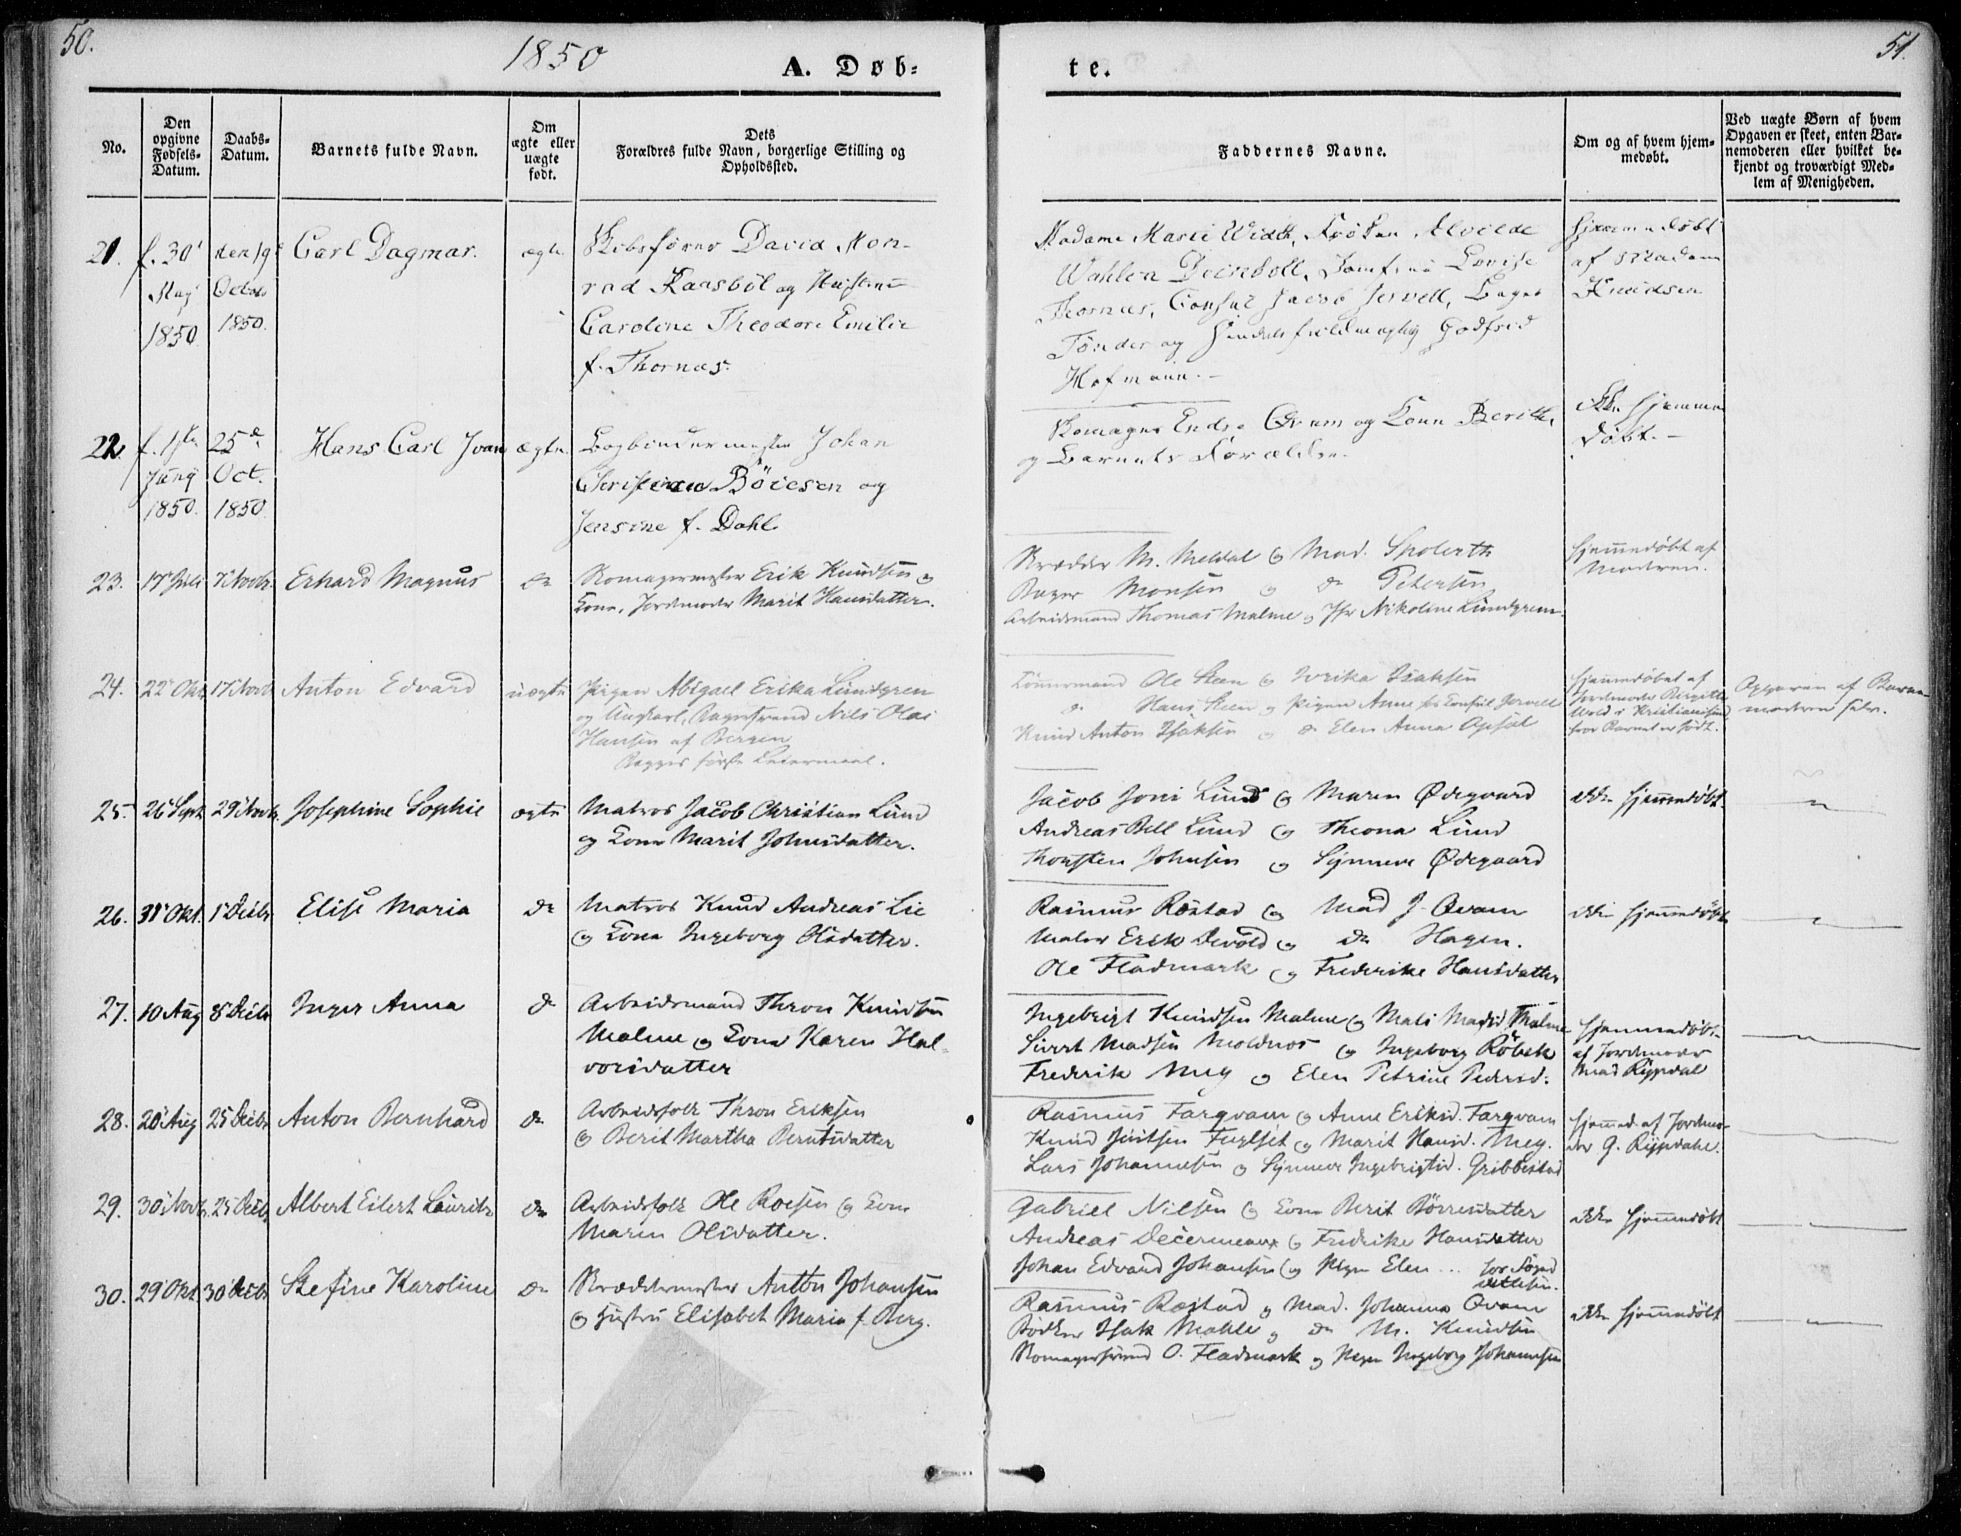 50.
1850
A. Døb=
te.
51.
No.
Den opgivne Fødsels-Datum.
Daabs-Datum.
Barnets fulde Navn.
Om ægte eller uægte født.
Dets Forældres fulde Navn, borgerlige Stilling og Opholdssted.
Faddernes Navne.
Om og af hvem hjemmedøbt.
Ved uægte Børn af hvem Opgaven er skeet, enten Barnemoderen eller hvilket bekjendt og troværdigt Medlem af Menigheden.
21. f. 30 Maj 1850 den 19 Octob 1850. Carl Dagmar. ægte
Skibsfører David Mon-
rad Kaasbøl og Hustrue
Caroline Theodore Emilie
f. Thornæs.
Madame Marie Width, Frøken Alvilde
Wahleva Deinboll, Jomfrue Lovise
Thornæs, Consul Jacob Jervell, Bager
Tønder og Handelsfuldmægtig Godfred
Hofmann.
Hjemmedøbt
af Madam
Knudsen
22. f. 1ste Junij 1850. 25de Oct. 1850 Hans Carl Ivan ægte
Bogbindermester Johan
Christian Böiesen og
Jensine f. Dahl.
Skomager Endre Qvam og Kone Berith,
og Barnets Forældre.
Ikke hjemme
døbt.
23. 17 Juli 7 Novbr. Erhard Magnus do
Skomagermester Erik Knudsen og
Kone, Jordmoder Marit Hansdatter.
Skrædder M. Meldal og Mad. Spolerth
Bager Monsen og do Petersen
Arbeidsmand Thomas Malme og Jfr Nikoline Lundgren
Hjemmedøbt af
Moderen.
24. 22 Okt 17 Novb Anton Edvard uægte
Pigen Abigael Erika Lundgren
og Ungkarl, Bagersvend Nils Olai
Hansen af Bergen
Begges første Leiermaal.
Tømmermand Ole Steen og Isaksen
do Hans Steen og Pigen Anne hos Konsul Jervell
Knud Anton Isaksen og do Elen Anna Opsal
Hjemmedøbt af
Jordmoder Birgitte
Wold i Kristiansund
hvor Barnet er født.
Opgaven af Barne
moderen selv.
25. 26 Sept 29 Novb. Josephine Sophie ægte
Matros Jacob Christian Lund
og Kone Marit Johnsdatter.
Jacob Joni Lund og Maren Ødegaard
Andreas Bell Lund og Theona Lund
Thorsten Johnsen og Synneve Ødegaard
ikke hjemmedøbt.
26. 31 Okt. 1 Decbr Elise Maria do
Matros Knud Andreas Lie
og Kone Ingeborg Olsdatter.
Rasmus Røstad og Mad J. Qvam
Maler Erik Devold og do Hagen.
Ole Fladmark og Frederike Hansdatter
ikke hjemmedøbt
27. 10 Aug 8 Decbr Inger Anna do
Arbeidsmand Thron Knudsen
Malme og Kone Karen Hal-
vorsdatter
Ingebrigt Knudsen Malme og Mali Madsd. Malme
Sivert Madsen Moldnes og Ingeborg Röbek
Frederik Meg og Elen Petrine Pedersd:
Hjemmedøbt
af Jordmoder
Mad Rypdal
28. 20 Aug 25 Decbr Anton Bernhard do
Arbeidsfolk Thron Eriksen
og Berit Martha Berntsdatter
Rasmus Fargvam og Anne Eriksd. Fargvam
Knud Fuglset og Marit Hansd. Meg.
Lars Johannesen og Synneve Ingebrigtsd. Gribbestad
hjemmed. af Jordmo-
der G. Rypdahl.
29. 30 Novb. 25 Decbr Albert Eilert Lauritz do
Arbeidsfolk Ole Roesen og Kone
Maren Olsdatter.
Gabriel Nilsen og Kone Berit Børresdatter
Andreas Decermeaux og Fredrike Hansdatter
Johan Edvard Johansen og Pigen Elen ... hos Foged
Ditlefsen.
ikke hjemmedøbt
30. 29 Okt. 30 Decbr Stefine Karoline do
Skræddermester Anton Johansen
og Hustru Elisabet Maria f. Berg.
Rasmus Røstad og Mad. Johanna Qvam
Bødker Isak Mahle og do M. Knudsen
Skomagersvend O. Fladmark og Pigen Ingeborg Johannsen
ikke hjemmedøbt